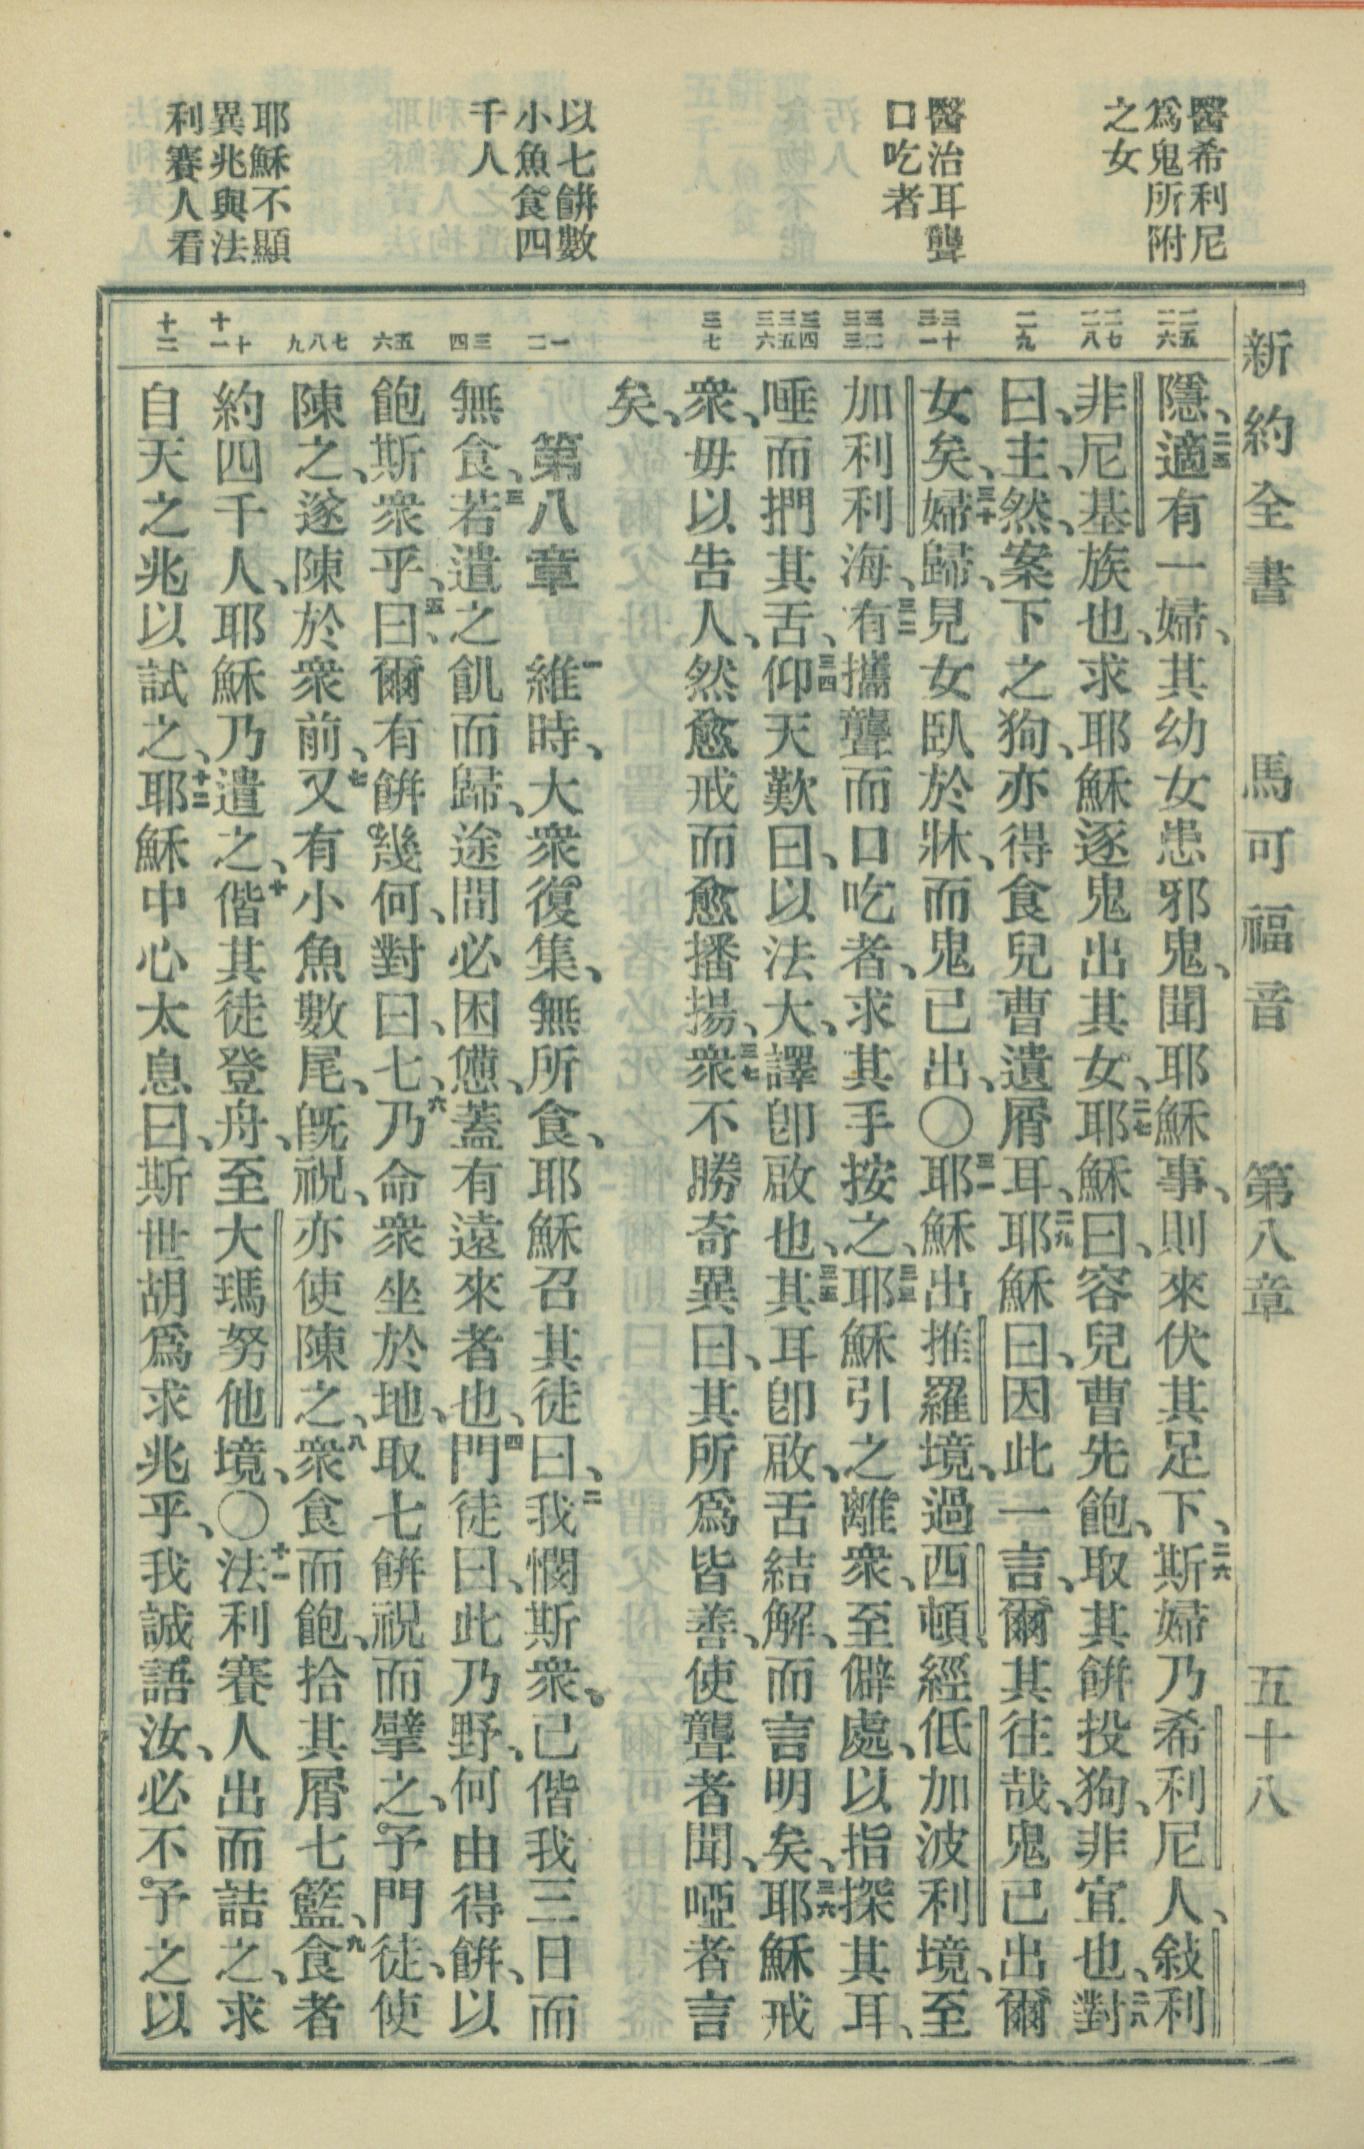 新約全書　馬可福音　第八章　五十八
醫希利尼
爲鬼所附
之女
醫治耳聾
口吃者
以七餅數
小魚食四
千人
耶穌不顯
異兆與法
利賽人看
二五
二六
二七
二八
二九
三十
三一
三二
三三
三四
三五
三六
三七
一
二
三
四
五
六
七
八
九
十
十一
十二
隱、二五適有一婦、其幼女患邪鬼、聞耶穌事、則來伏其足下、二六斯婦乃希利尼人、敍利
非尼基族也、求耶穌逐鬼出其女、二七耶穌曰、容兒曹先飽、取其餅投狗、非宜也、二八對
曰、主、然、案下之狗、亦得食兒曹遺屑耳、二九耶穌曰、因此一言、爾其往哉、鬼已出爾
女矣、三十婦歸、見女臥於牀、而鬼已出、〇三一耶穌出推羅境、過西頓、經低加波利境、至
加利利海、三二有攜聾而口吃者、求其手按之、三三耶穌引之離衆、至僻處、以指探其耳、
唾而捫其舌、三四仰天歎曰、以法大、譯卽啟也、三五其耳卽啟、舌結解、而言明矣、三六耶穌戒
衆、毋以告人、然愈戒而愈播揚、三七衆不勝奇異曰、其所爲皆善、使聾者聞、啞者言
矣、
第八章　一維時、大衆復集、無所食、耶穌召其徒曰、二我憫斯衆、已偕我三日而
無食、三若遣之飢而歸、途間必困憊、蓋有遠來者也、四門徒曰、此乃野、何由得餅、以
飽斯衆乎、五曰、爾有餅幾何、對曰、七、六乃命衆坐於地、取七餅祝而擘之、予門徒、使
陳之、遂陳於衆前、七又有小魚數尾、旣祝、亦使陳之、八衆食而飽、拾其屑七籃、九食者
約四千人、耶穌乃遣之、十偕其徒登舟、至大瑪努他境、〇十一法利賽人出而詰之、求
自天之兆以試之、十二耶穌中心太息曰、斯世胡爲求兆乎、我誠語汝、必不予之以